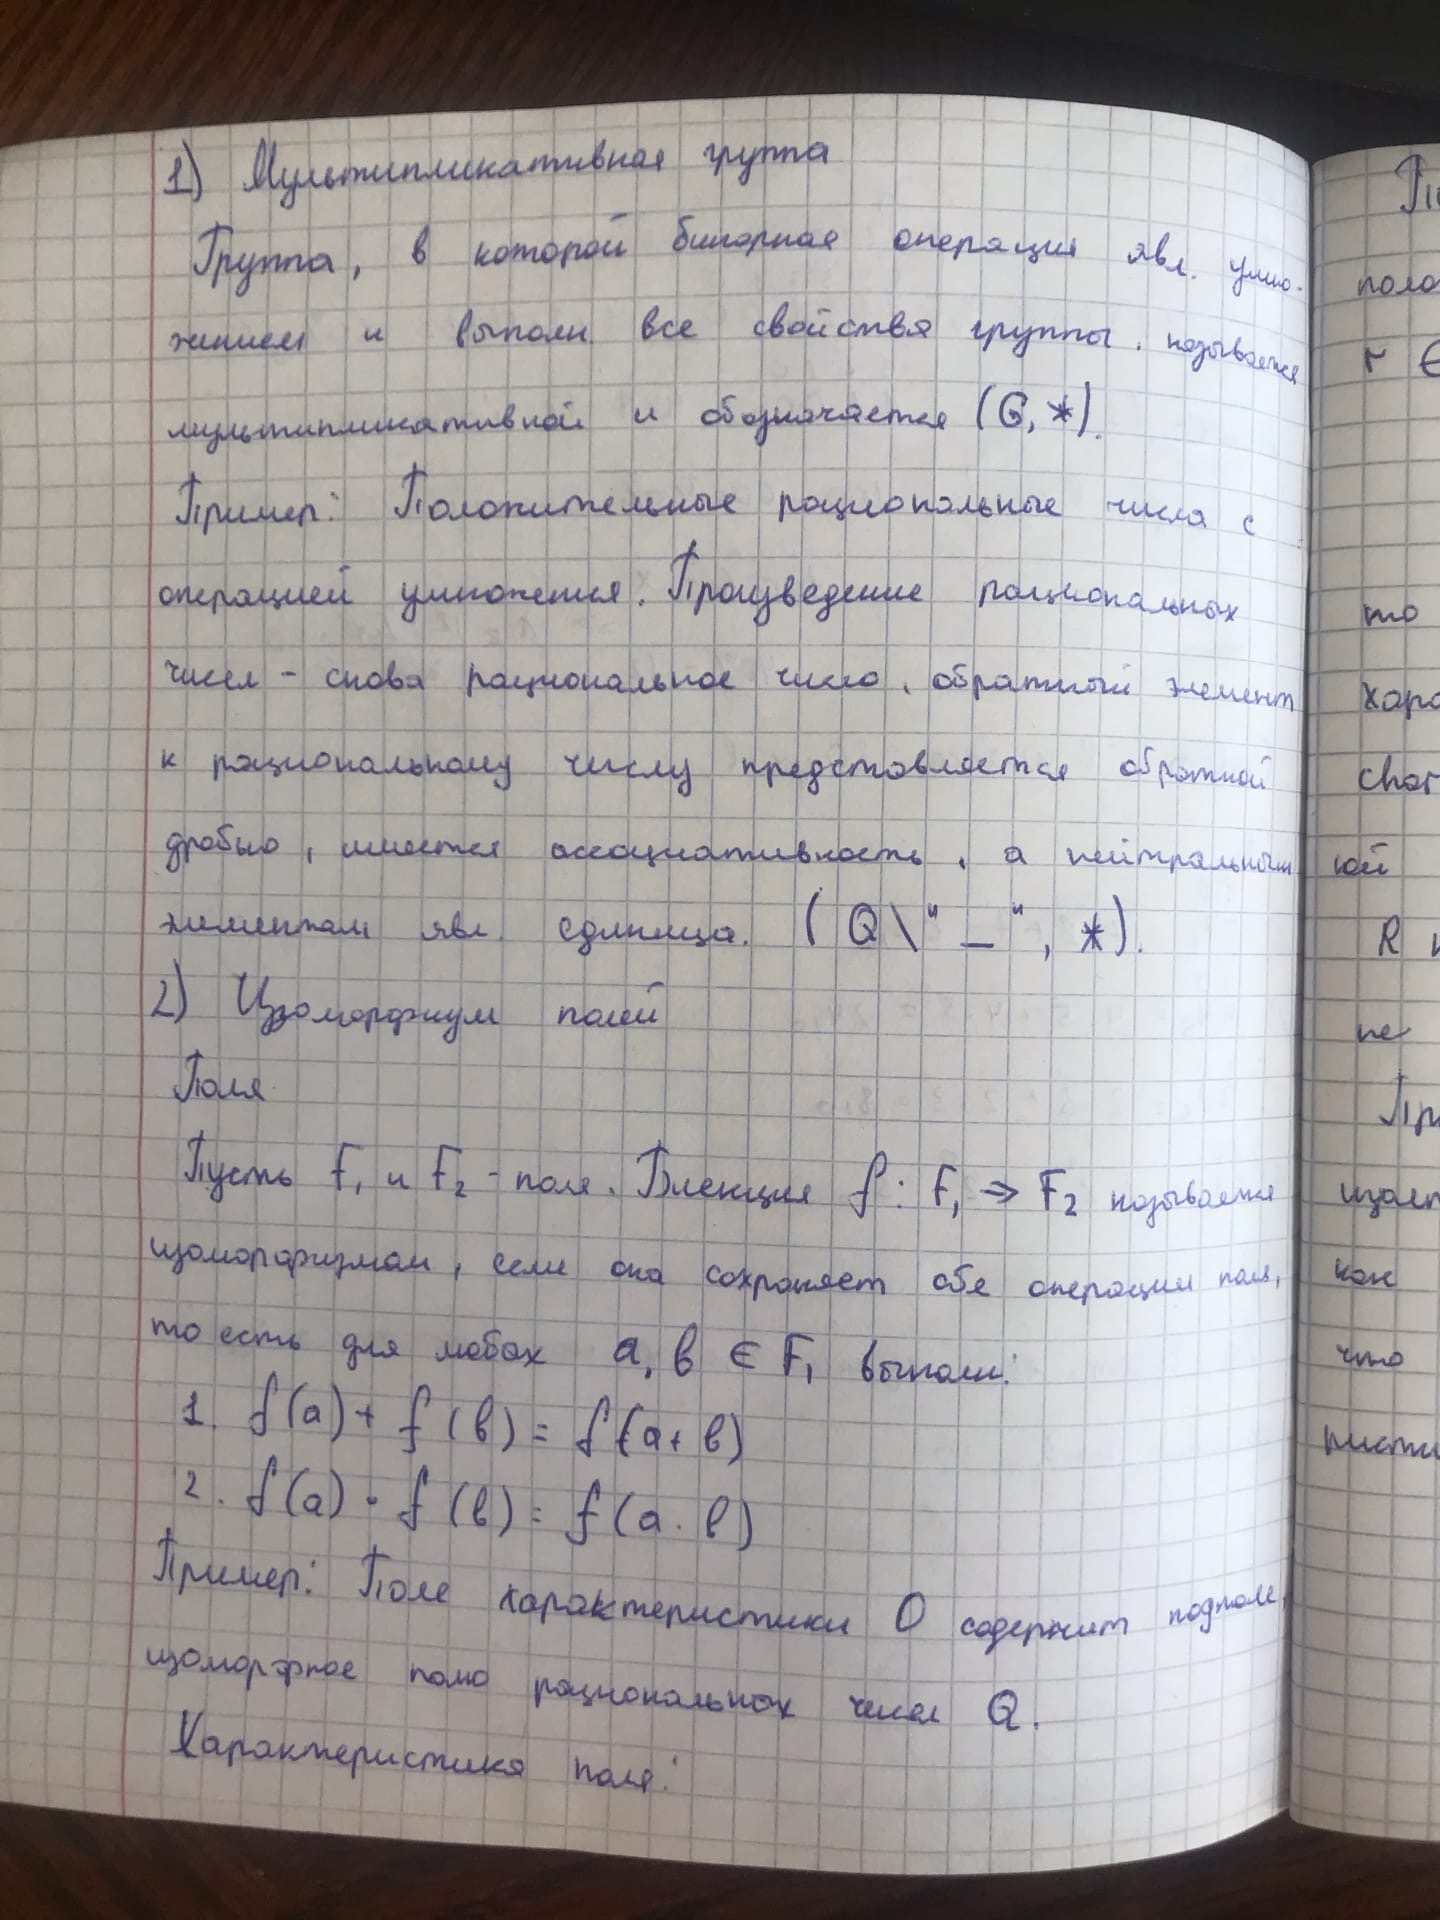 1) Мультипликативная группа
Группа, в которой бинарная операция явл. умно-
жением и выполн. все свойства группы, называется
мультипликативной и обозначается (G, *).
Пример: Положительные рациональные числа с
операцией умножения. Произведение рациональных
чисел - снова рациональное число, обратный элемент
к рациональному числу представляется обратной
дробью, имеется ассоциативность, а нейтральным
элементом явл. единица. (Q \ "_", *).
2) Изоморфизм полей
Поля
Пусть F₁ и F₂ - поля. Биекция f : F₁ → F₂ называется
изоморфизмом, если она сохраняет обе операции поля,
то есть для любых a, b ∈ F₁ выполн:
1. f(a) + f(b) = f(a + b)
2. f(a) · f(b) = f(a · b)
Пример: Поле характеристики 0 содержит подполе,
изоморфное полю рациональных чисел Q.
Характеристика поля:
поло
r ∈
то
хара
char
ой
R
не
Пр
как
что